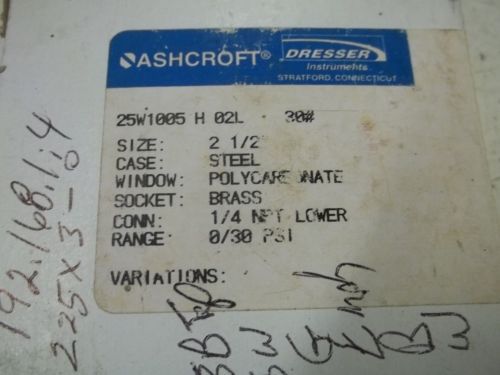 ASHCROFT® DRESSER
Instruments
STRATFORD, CONNECTICUT
25W1005 H 02L 30#
SIZE: 2 1/2"
CASE: STEEL
WINDOW: POLYCARBONATE
SOCKET: BRASS
CONN: 1/4 NPT LOWER
RANGE: 0/30 PSI
VARIATIONS:
192.168.1.4
225X3-0